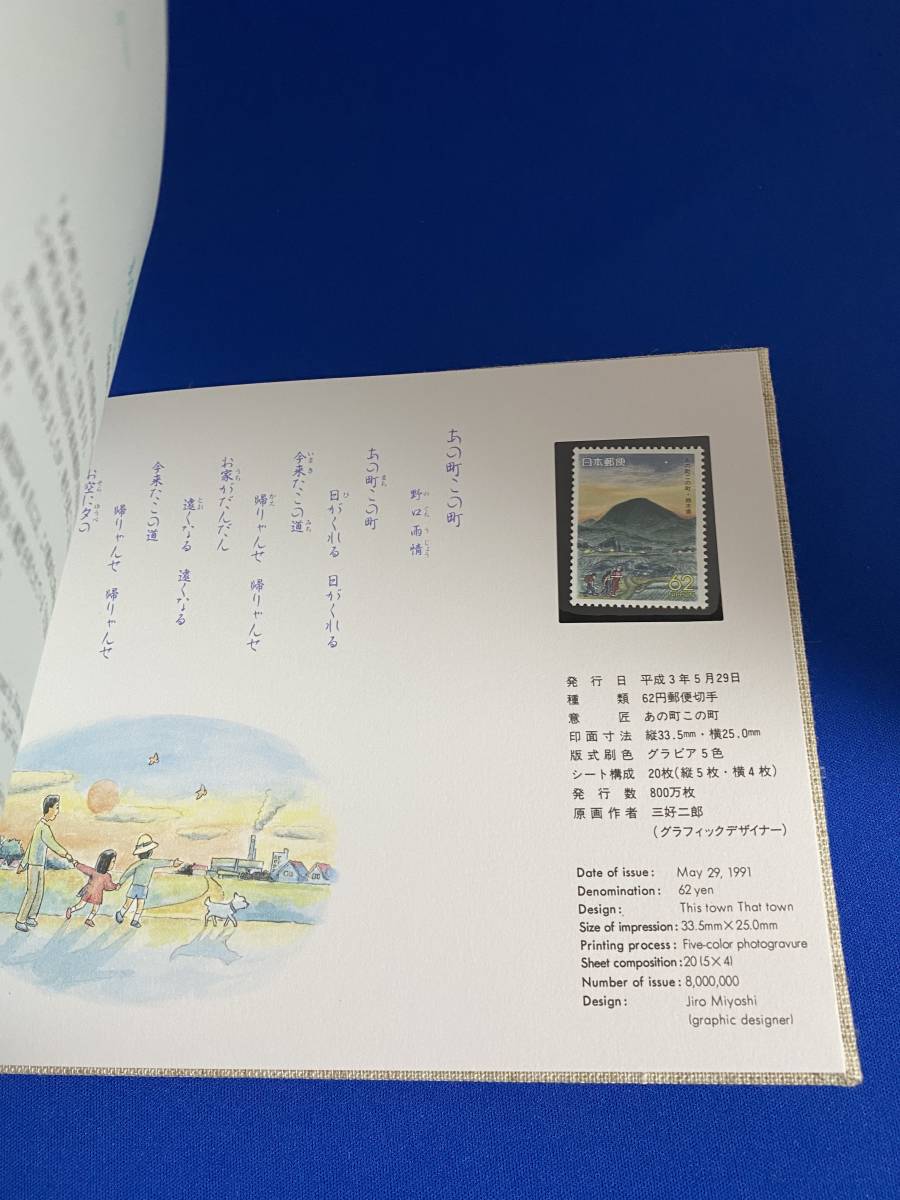 あの町この町
野口雨情
のぐちうじょう
あの町この町
まち
日がくれる 日がくれる
ひ
今来たこの道
いまき
みち
帰りゃんせ 帰りゃんせ
かえ
お家がだんだん
うち
遠くなる 遠くなる
とお
今来たこの道
帰りゃんせ 帰りゃんせ
お空に夕の
そら
ゆうべ
日本郵便
あの町この町・栃木県
62
NIPPON
発行日 平成3年5月29日
種類 62円郵便切手
意匠 あの町この町
印面寸法 縦33.5mm・横25.0mm
版式刷色 グラビア5色
シート構成 20枚(縦5枚・横4枚)
発行数 800万枚
原画作者 三好二郎
(グラフィックデザイナー)
Date of issue: May 29, 1991
Denomination: 62 yen
Design: This town That town
Size of impression: 33.5mm×25.0mm
Printing process: Five-color photogravure
Sheet composition: 20 (5×4)
Number of issue: 8,000,000
Design: Jiro Miyoshi
(graphic designer)